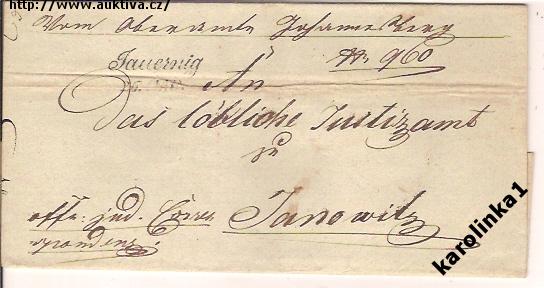 http://www.auktiva.cz/
Vom Oberamte Johannesberg
Nr. 960
Jauernig
An
Das löbliche Justizamt
zu
offz. jud. Corre
spondenz
Janowitz
karolinka1